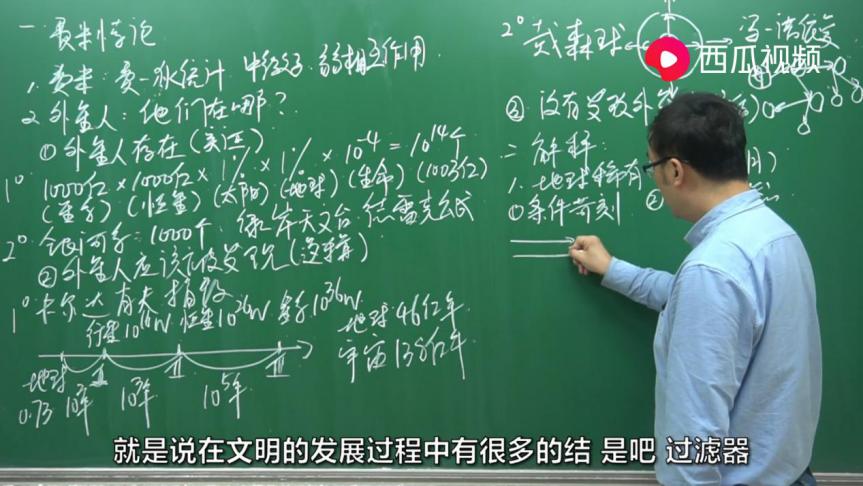 一、费米悖论
1. 费米:费—狄统计 中微子 弱相互作用
2. 外星人:他们在哪?
① 外星人存在(实证)
1° 1000亿×1000亿×1%×1%×10⁻⁴=10¹⁴个
(星系)(恒星)(太阳)(地球)(生命)(100亿)
2° 银河系:1000个 绿岸天文台 德雷克公式
② 外星人应该被发现(逻辑)
1° 卡尔达肖夫指数
行星10¹⁶W 恒星10²⁶W 星系10³⁶W
地球46亿年
宇宙138亿年
I II III
地球
0.73 10²年 10³年 10⁵年
2° 戴森球
冯·诺依曼
③ 没有发现外星
二、解释:
1. 地球稀有
① 条件苛刻 ②
西瓜视频
就是说在文明的发展过程中有很多的结 是吧 过滤器